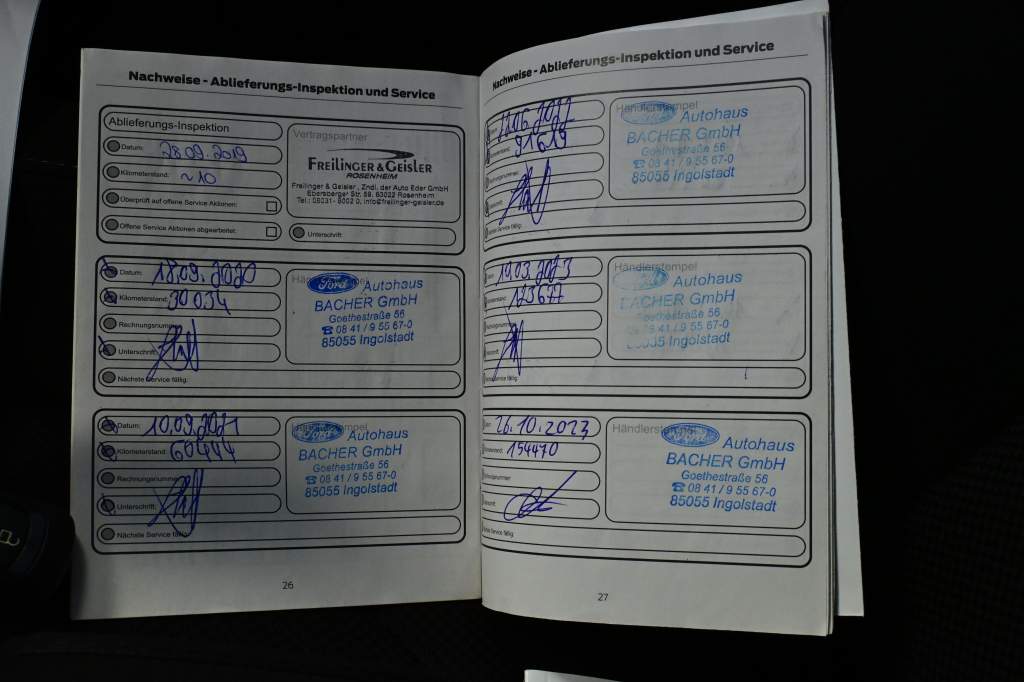 Nachweise - Ablieferungs-Inspektion und Service
Ablieferungs-Inspektion
Datum: 28.09.2019
Kilometerstand: ~10
Überprüft auf offene Service Aktionen:
Offene Service Aktionen abgearbeitet:
Vertragspartner
FREILINGER & GEISLER
ROSENHEIM
Freilinger & Geisler, Zndl. der Auto Eder GmbH
Ebersberger Str. 59, 83022 Rosenheim
Tel.: 08031- 8002 0, info@freilinger-geisler.de
Unterschrift:
Datum: 18.09.2020
Kilometerstand: 30034
Rechnungsnummer
Unterschrift:
Nächste Service fällig:
Händlerstempel
Ford Autohaus
BACHER GmbH
Goethestraße 56
☎ 08 41 / 9 55 67-0
85055 Ingolstadt
Datum: 10.09.2021
Kilometerstand: 60444
Rechnungsnummer
Unterschrift:
Nächste Service fällig:
Händlerstempel
Ford Autohaus
BACHER GmbH
Goethestraße 56
☎ 08 41 / 9 55 67-0
85055 Ingolstadt
26
Nachweise - Ablieferungs-Inspektion und Service
06.2022
91619
Service fällig:
Händlerstempel
Ford Autohaus
BACHER GmbH
Goethestraße 56
☎ 08 41 / 9 55 67-0
85055 Ingolstadt
03.2023
Service fällig:
Händlerstempel
Autohaus
BACHER GmbH
Goethestraße 56
08 41 / 9 55 67-0
Ingolstadt
26.10.2023
154470
Service fällig:
Händlerstempel
Ford Autohaus
BACHER GmbH
Goethestraße 56
☎ 08 41 / 9 55 67-0
85055 Ingolstadt
27